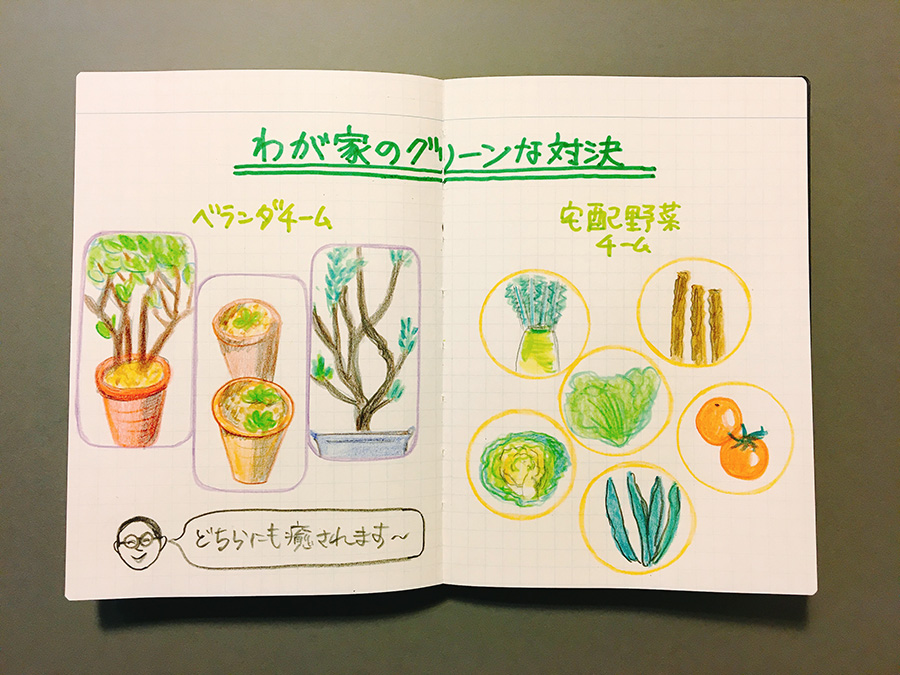 わが家のグリーンな対決
ベランダチーム
宅配野菜
チーム
どちらにも癒されます〜